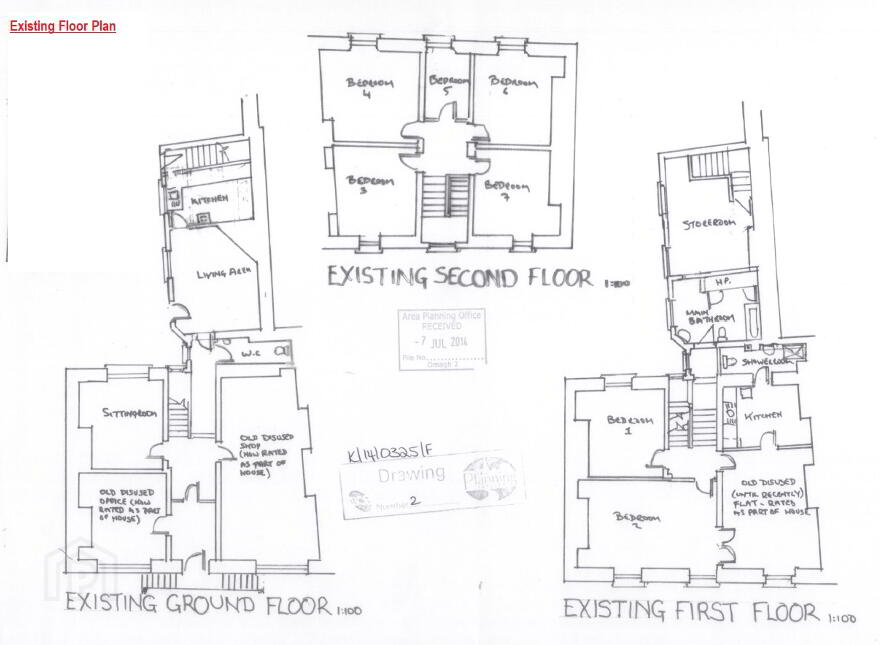 Existing Floor Plan
BEDROOM
4
BEDROOM
5
BEDROOM
6
BEDROOM
3
BEDROOM
7
EXISTING SECOND FLOOR 1:100
KITCHEN
LIVING AREA
W.C
SITTINGROOM
OLD DISUSED
SHOP
(NOW RATED
AS PART OF
HOUSE)
OLD DISUSED
OFFICE (NOW
RATED AS PART
OF HOUSE)
EXISTING GROUND FLOOR 1:100
Area Planning Office
RECEIVED
-7 JUL 2014
File No.
Omagh 2
K/14/0325/F
Drawing
Number 2
Planning
STOREROOM
H.P.
MAIN
BATHROOM
SHOWEROOM
KITCHEN
BEDROOM
1
BEDROOM
2
OLD DISUSED
(UNTIL RECENTLY)
FLAT - RATED
AS PART OF HOUSE
EXISTING FIRST FLOOR 1:100